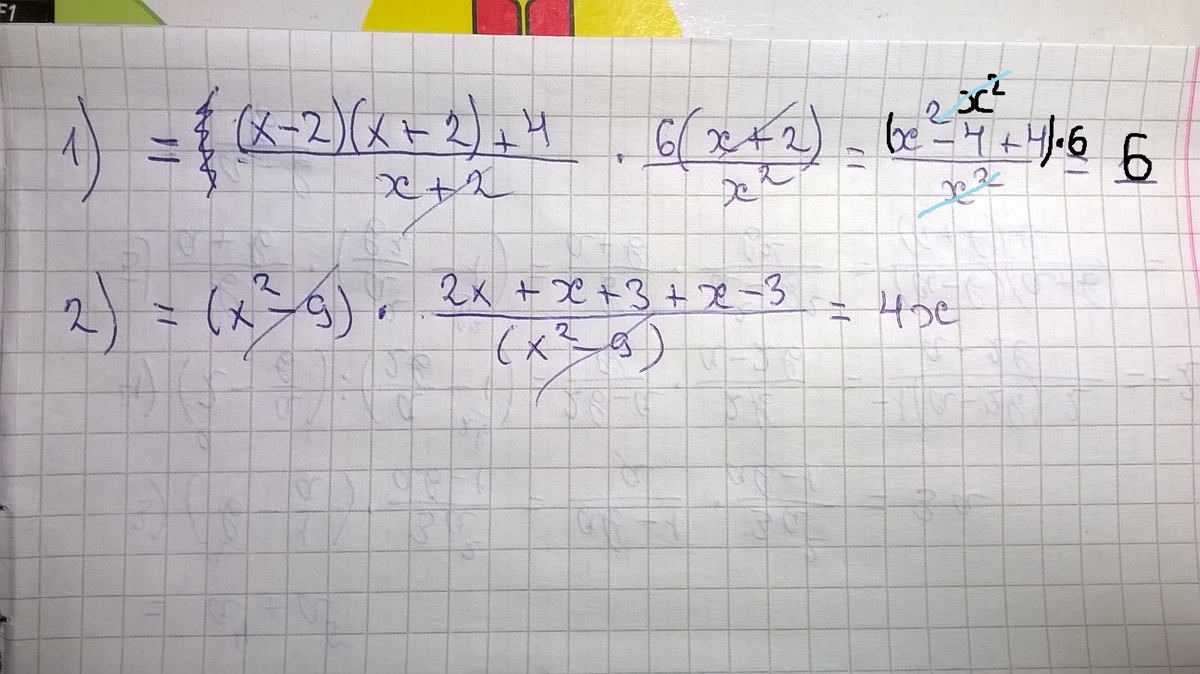 F1
1) = ((x-2)(x+2)+4)/(x+2) · 6(x+2)/x² = (x²-4+4)·6/x² x² = 6
2) = (x²-9) · (2x+x+3+x-3)/(x²-9) = 4x